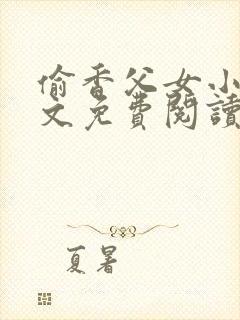 偷香父女小
文免費閱讀
夏暑